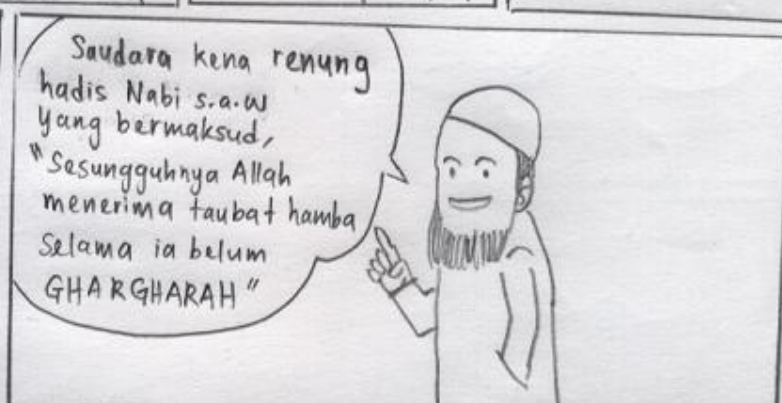 Saudara kena renung
hadis Nabi s.a.w
yang bermaksud,
"Sesungguhnya Allah
menerima taubat hamba
selama ia belum
GHARGHARAH"